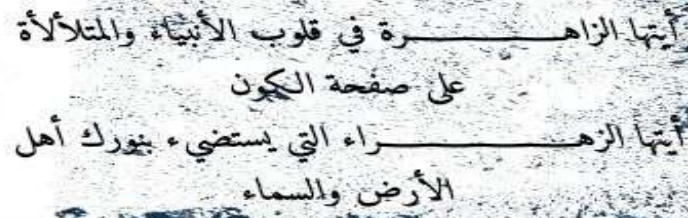 أيتها الزاهـــــــــــرة في قلوب الأنبياء والمتلألأة
على صفحة الكون
أيتها الزهـــــــــــراء التي يستضيء بنورك أهل
الأرض والسماء